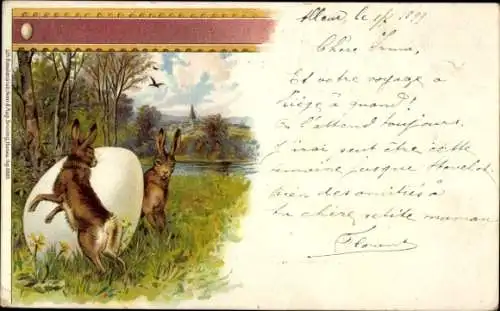 Alleur, le 1899
Chère Irma,
Et votre voyage à
Liège à quand?
On l'attend toujours.
J'irai peut être cette
semaine jusque
bien des amitiés à
ta chère petite maman
Florent